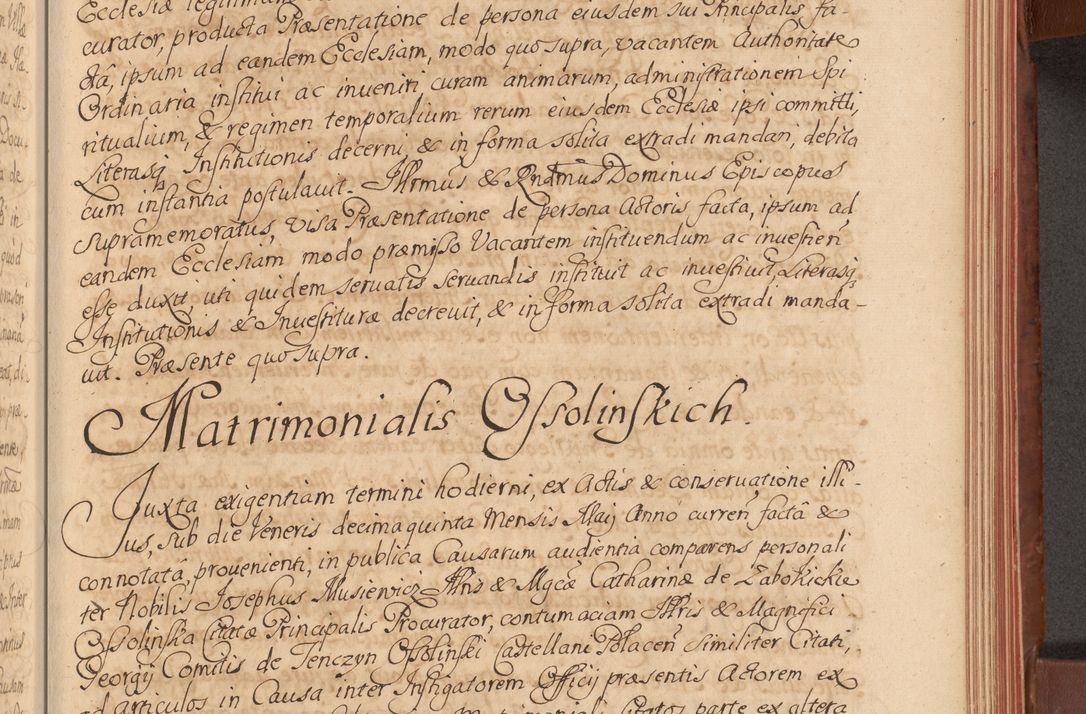 Ecclesiæ legitimum
curator, producta Præsentatione de persona eiusdem sui Principalis fa-
ctâ, ipsum ad eandem Ecclesiam, modo quo supra, vacantem Authoritate
Ordinaria institui ac investiri, curam animarum, administrationem Spi
ritualium, & regimen temporalium rerum eiusdem Ecclesiæ ipsi committi,
Literasq Institutionis decerni, & in forma solita extradi mandari, debita
cum instantia postulavit. Illrmus & Rndmus Dominus Episcopus
supramemoratus, visa Præsentatione de persona Actoris facta, ipsum ad
eandem Ecclesiam modo præmisso Vacantem instituendum ac investien
esse duxit uti quidem servatis servandis instituit ac investivit, Literasq
Institutionis & Investituræ decrevit, & in forma solita extradi manda-
vit. Præsente quo supra.
Matrimonialis Ossolinskich.
Juxta exigentiam termini hodierni, ex Actis & conservatione illi-
us, sub die Veneris decima quinta Mensis Maij Anno curren factâ &
connotatâ, provenienti, in publica Causarum audientia comparens personali
ter Nobilis Josephus Musiewicz Illris & Mgcæ Catharinæ de Zabokickie
Ossolinska Citatæ Principalis Procurator, contumaciam Illris & Magnifici
Georgij Comitis de Tenczyn Ossolinski Castellani Połacen similiter Citati,
ad articulos in Causa inter Instigatorem Officij præsentis Actorem ex
Citatos parte ex altera